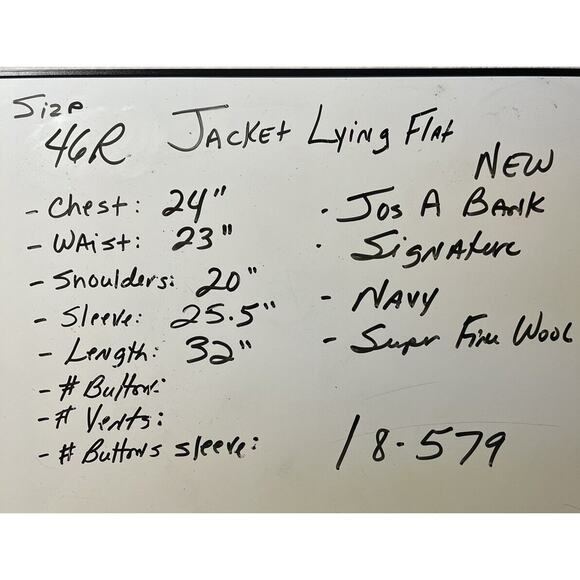 Size
46R Jacket Lying Flat
NEW
- Chest: 24"
- Waist: 23"
- Shoulders: 20"
- Sleeve: 25.5"
- Length: 32"
- # Button:
- # Vents:
- # Buttons sleeve:
· Jos A Bank
· Signature
- Navy
- Super Fine Wool
18-579